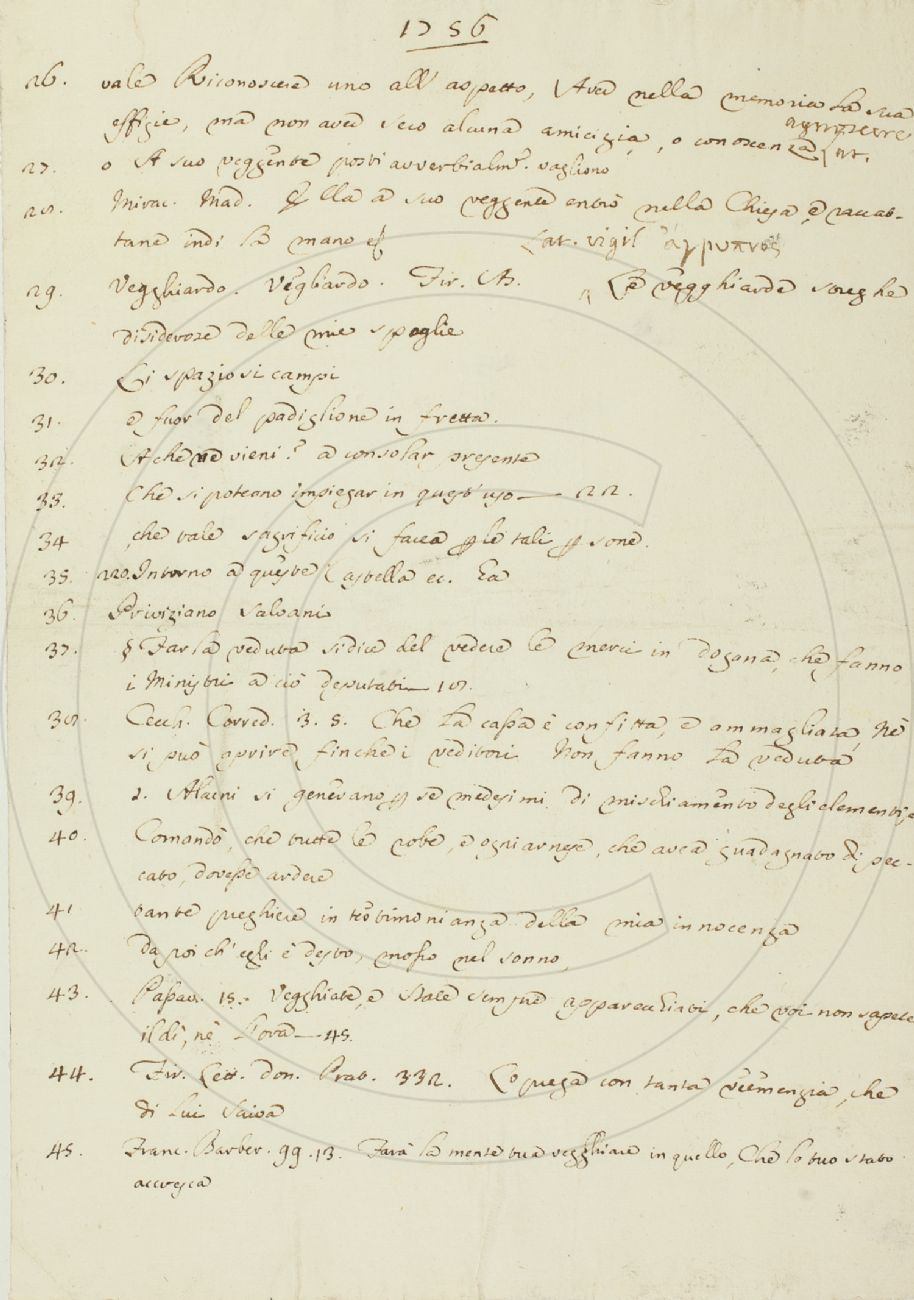 1756
26. vale Riconoscere uno all' aspetto, Aver nella memoria la sua
effigie, ma non aver seco alcuna amicizia, o conoscenza Lat.
agnoscere
27. o A suo veggente posti avverbialm. vagliono
28. Mirac. Mad. Ella a suo veggente entrò nella Chiesa, e raccat-
tane indi la mano ec
Lat. vigil ἀγρυπνὸς
29. Vegghiardo. Vegliardo. Fir. As. Le vegghiarde streghe
disiderose delle mie spoglie
30. Li spaziosi campi
31. e fuor del padiglione in fretta.
32. A che ne vieni? a consolar presente
33. Che si poteano impiegar in quest' uso — 22.
34 che tale sagrificio si facea p le tali psone.
35. 220. Intorno a queste Castella ec. Ea
36. Provenzano Salvani
37. § Far la veduta si dice del vedere le merci in dogana, che fanno
i Ministri a ciò deputati — 18.
38. Cecch. Corred. 3. 5. Che la cassa è confitta, e ammagliata, Nè
si può aprire finche i veditori Non fanno la veduta
39. 2. Alcuni si generano p se medesimi di mischiamento degli elementi, e
40. Comandò, che tutte le robe, e ogni arnese, che avea guadagnato di pec-
cato, dovesse ardere
41 tante preghiere in testimonianza della mia innocenza
42. da poi ch' egli è desto, mosso nel sonno
43. Passav. 15. Vegghiate, e state sempre apparecchiati, che voi non sapete
il dì, nè l'ora — 45.
44. Fir. Lett. don. Prat. 332. Lo prega con tanta veemenzia, che
di lui
45. Franc. Barber. 99.13. Farà la mente tua vegghiare in quello, Che lo tuo stato
accresca